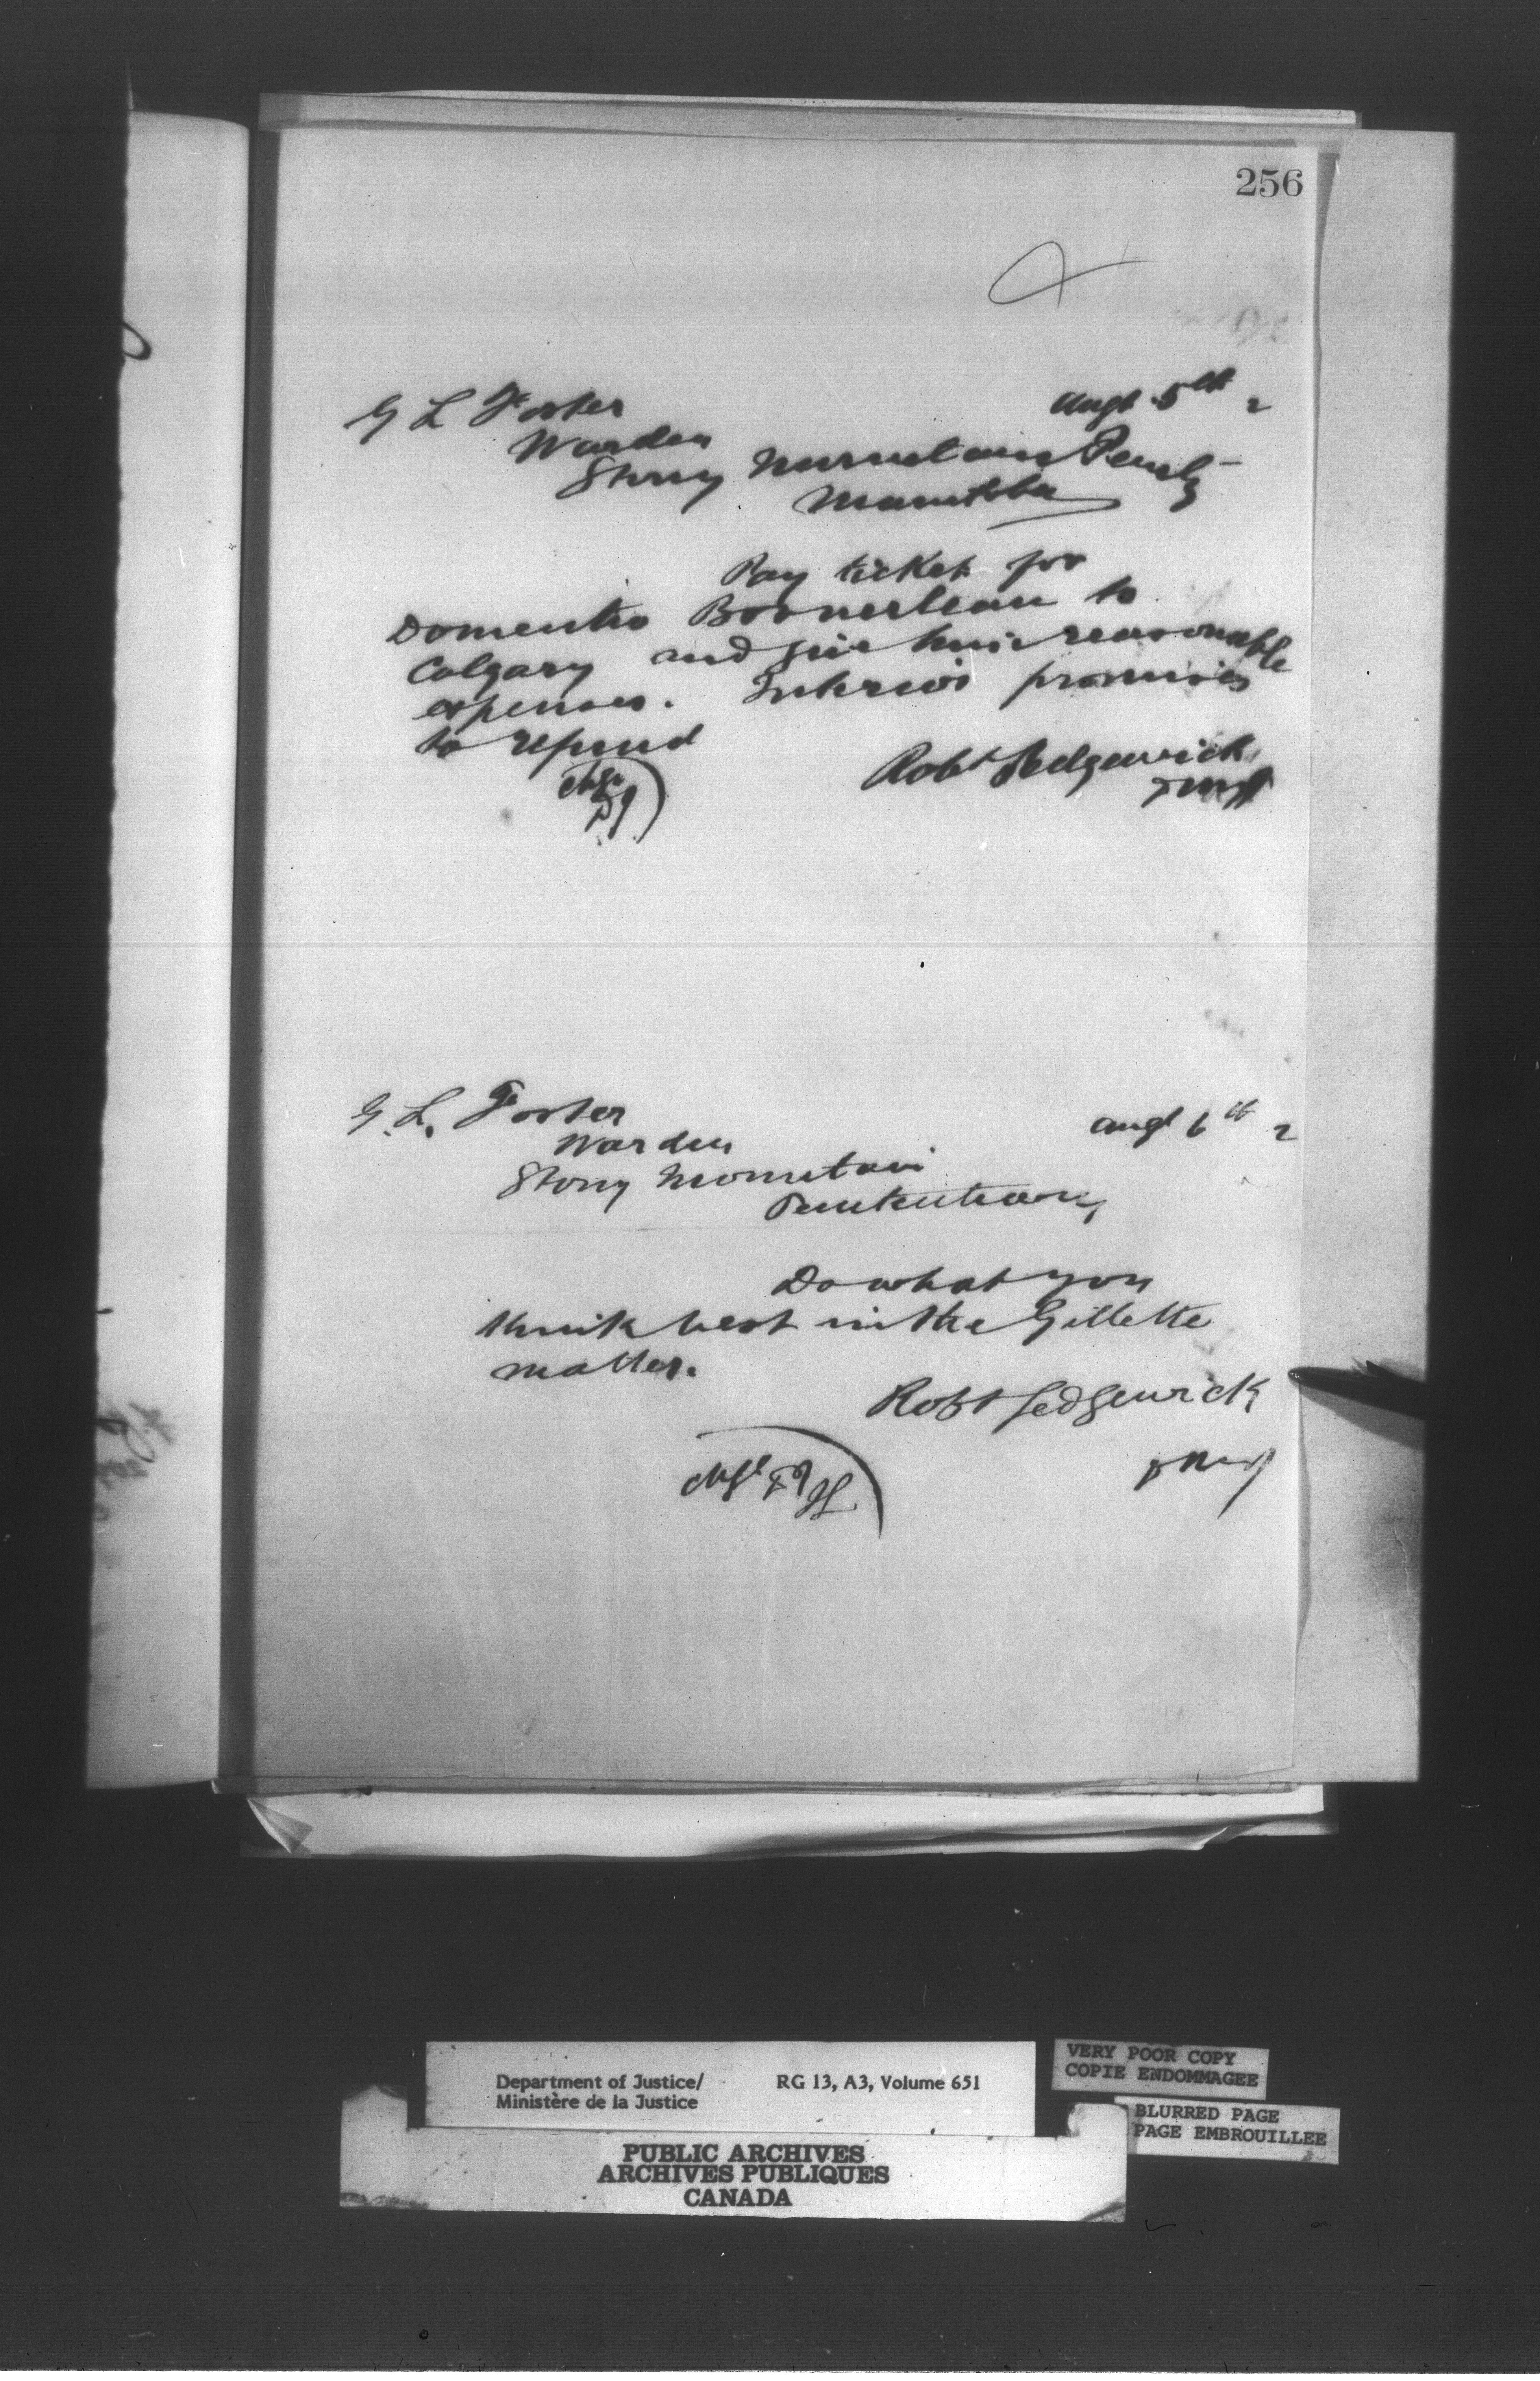 256
Augt 5th 2
G L Foster
Warden
Stony Mountain Penty
Manitoba
Pay ticket for
Domentio Boonerleau to
Calgary and give him reasonable
expenses. Interior promises
to refund
Robt Sedgewick
DMJ
Chge
DJ
G. L. Foster
Augt 6th 2
Warden
Stony Mountain
Penitentiary
Do what you
think best in the Gillette
matter.
Robt Sedgewick
DMJ
Chge DJ
Department of Justice/ RG 13, A3, Volume 651
Ministère de la Justice
VERY POOR COPY
COPIE ENDOMMAGEE
BLURRED PAGE
PAGE EMBROUILLEE
PUBLIC ARCHIVES
ARCHIVES PUBLIQUES
CANADA